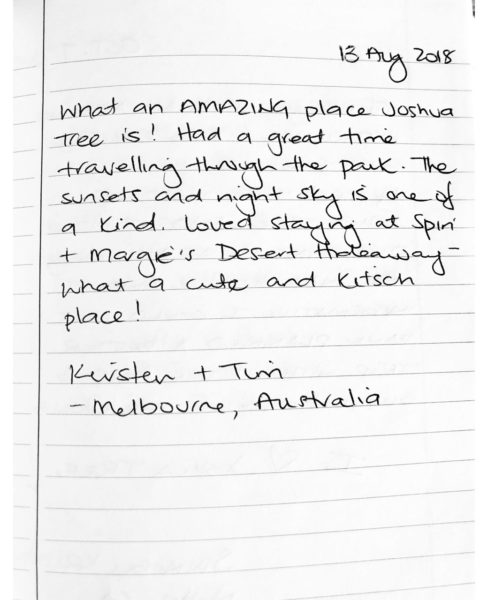 13 Aug 2018
What an AMAZING place Joshua
Tree is! Had a great time
travelling through the park. The
sunsets and night sky is one of
a kind. Loved staying at Spin
+ Margie's Desert Hideaway -
what a cute and kitsch
place!
Kirsten + Tim
- Melbourne, Australia